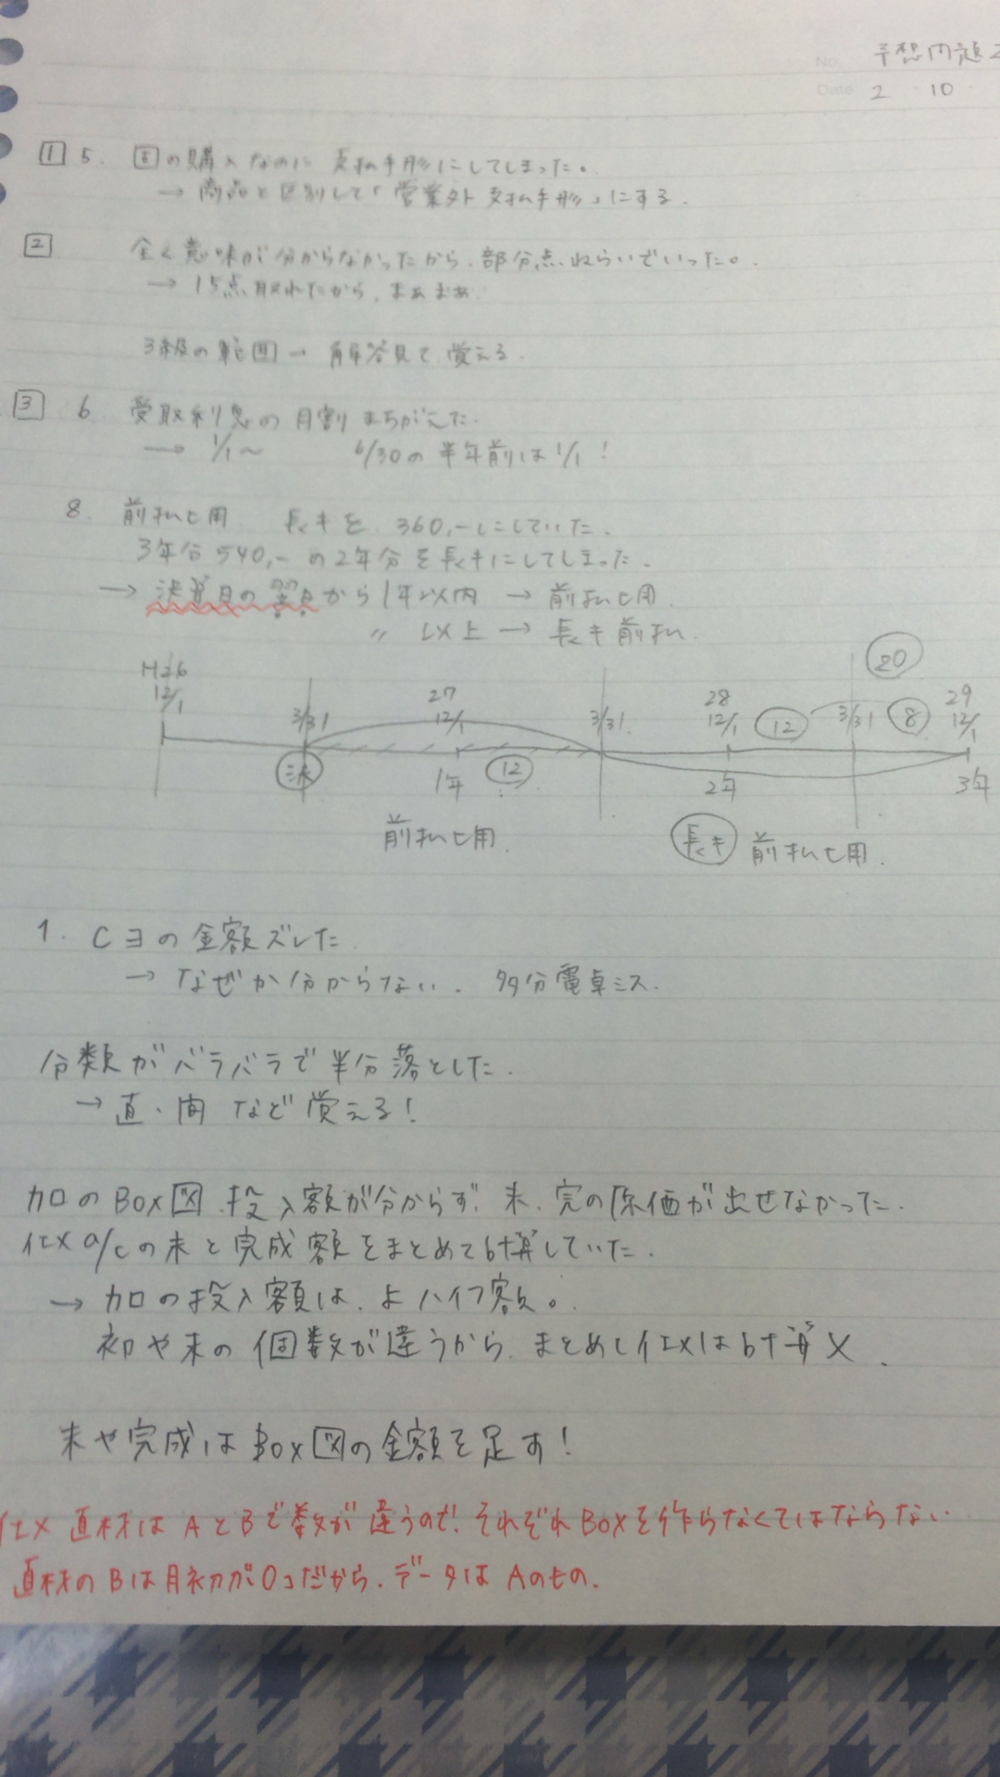 No. 予想問題2
Date 2 10
1 5. 固の購入なのに 支払手形にしてしまった。
→ 商品と区別して「営業外支払手形」にする.
2 全く意味が分からなかったから、部分点ねらいでいった。
→ 15点取れたから、まぁまぁ
3級の範囲 → 解答見て覚える.
3 6 受取利息の月割まちがえた.
→ 1/1〜 6/30の半年前は1/1!
8. 前払ヒ用 長キを 360,-にしていた.
3年分540,-の2年分を長キにしてしまった.
→ 決算日の翌日から1年以内 → 前払ヒ用.
〃 以上 → 長キ前払.
20
H26 27 28 29
12/1 3/31 12/1 3/31 12/1 12 3/31 8 12/1
決 1年 12 2年 3年
前払ヒ用 長キ 前払ヒ用.
1. Cヨの金額ズレた.
→ なぜか分からない. 多分電卓ミス.
分類がバラバラで半分落とした.
→ 直・間 など覚える!
加のBox図 投入額が分からず、末、完の原価が出せなかった.
仕メ a/cの末と完成額をまとめて計算していた.
→ 加の投入額は、よハイフ額。
初や末の個数が違うから、まとめし仕メは計算×.
末や完成はBox図の金額を足す!
仕メ 直材はAとBで数が違うので、それぞれBoxを作らなくてはならない
直材のBは月初が0コだから、データはAのもの.